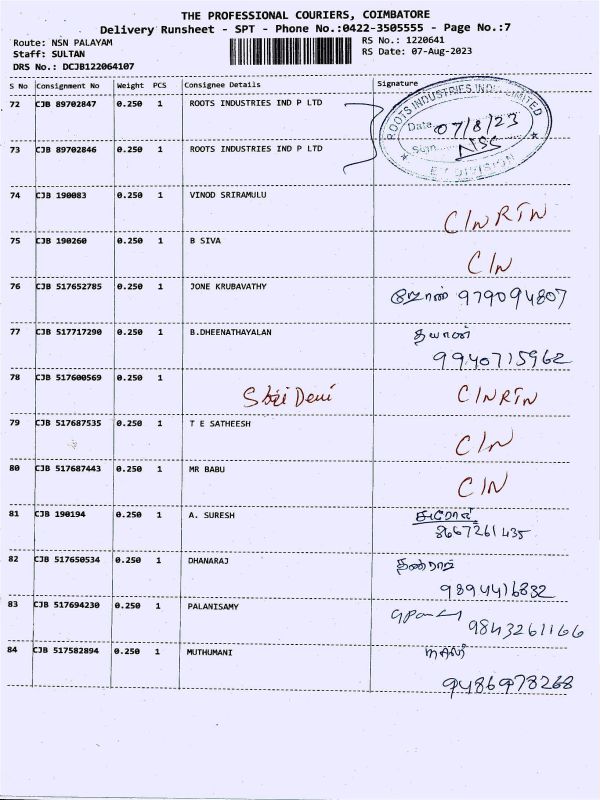 THE PROFESSIONAL COURIERS, COIMBATORE
Delivery Runsheet - SPT - Phone No.:0422-3505555 - Page No.:7
Route: NSN PALAYAM
RS No.: 1220641
Staff: SULTAN
RS Date: 07-Aug-2023
DRS No.: DCJB122064107
S No Consignment No Weight PCS Consignee Details Signature
72 CJB 89702847 0.250 1 ROOTS INDUSTRIES IND P LTD
ROOTS INDUSTRIES INDIA LIMITED
Date 07/8/23
Sign
DIVISION
73 CJB 89702846 0.250 1 ROOTS INDUSTRIES IND P LTD
74 CJB 190083 0.250 1 VINOD SRIRAMULU
C/N RTN
75 CJB 190260 0.250 1 B SIVA
C/N
76 CJB 517652785 0.250 1 JONE KRUBAVATHY
ஜோண் 979094807
77 CJB 517717290 0.250 1 B.DHEENATHAYALAN
தயாளன்
9940715962
78 CJB 517600569 0.250 1
Devi C/N RTN
79 CJB 517687535 0.250 1 T E SATHEESH
C/N
80 CJB 517687443 0.250 1 MR BABU
C/N
81 CJB 190194 0.250 1 A. SURESH
8667261435
82 CJB 517650534 0.250 1 DHANARAJ
9894416832
83 CJB 517694230 0.250 1 PALANISAMY
9843261166
84 CJB 517582894 0.250 1 MUTHUMANI
9486978268